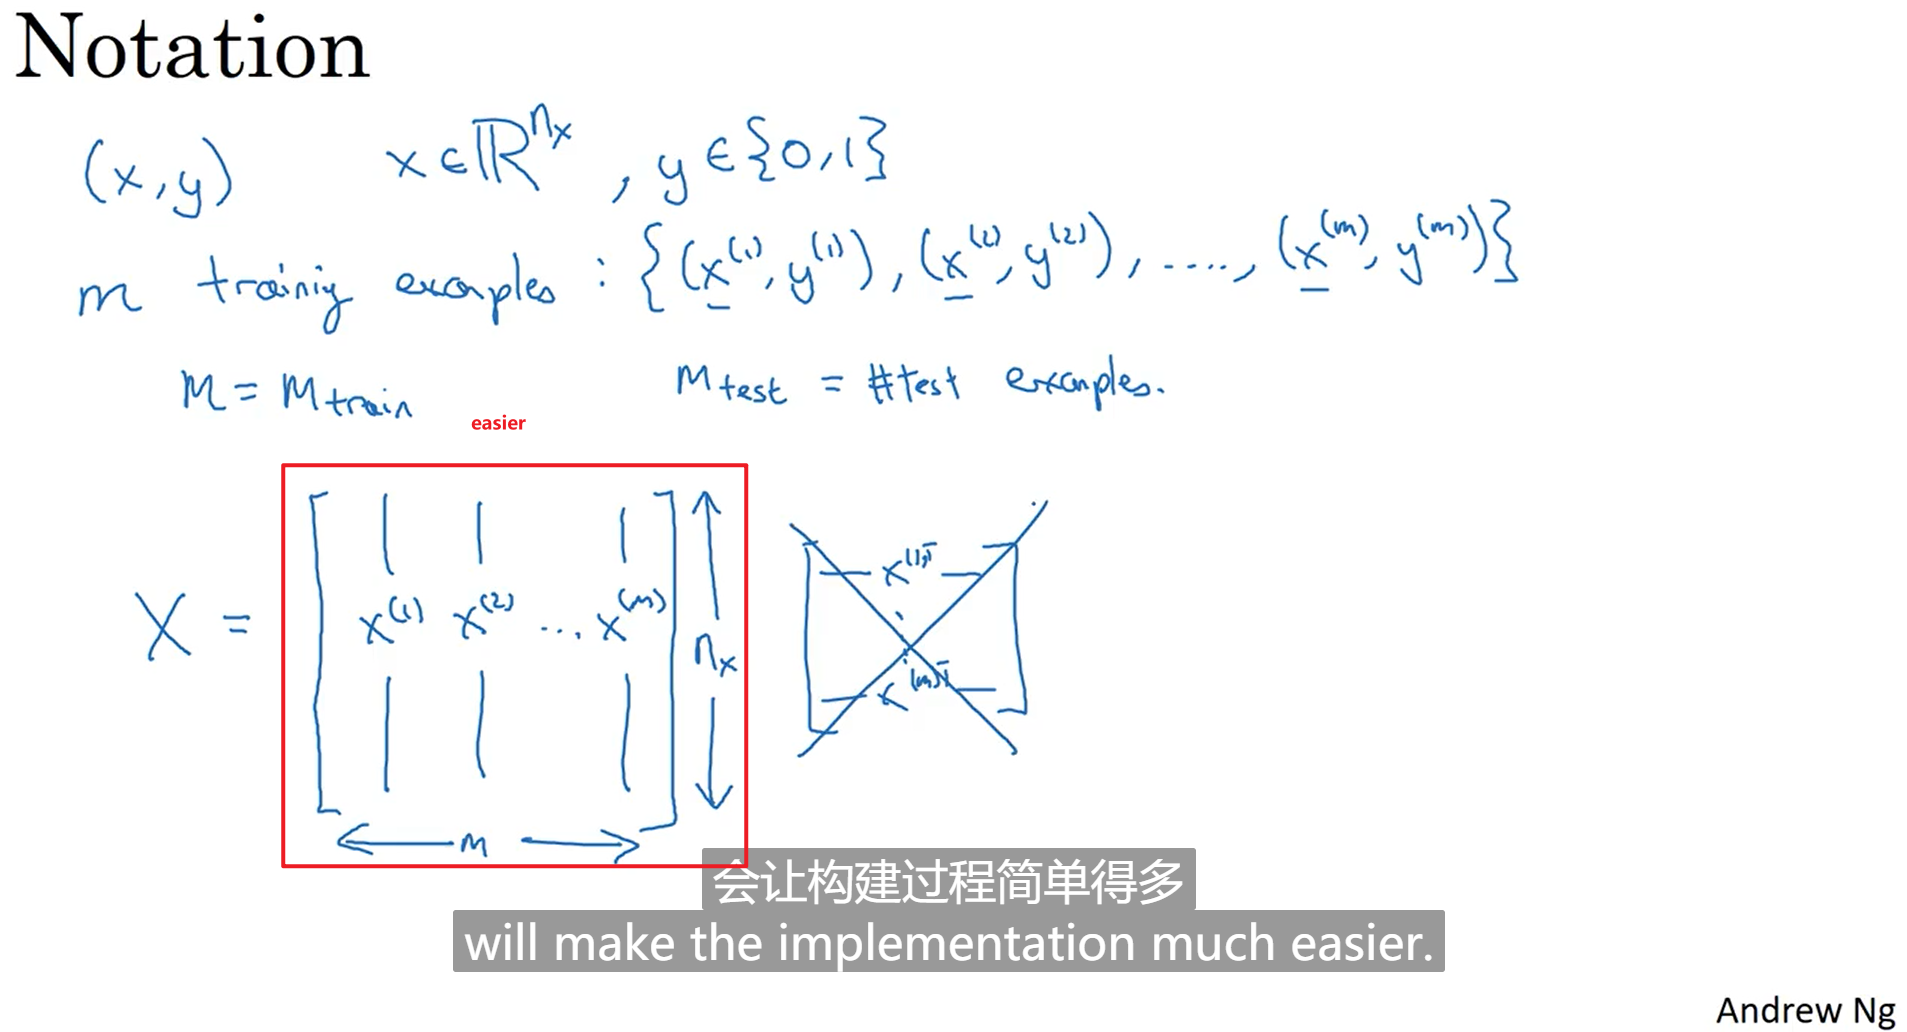 Notation
(x, y) x ∈ ℝ^{n_x}, y ∈ {0, 1}
m training examples : {(x^{(1)}, y^{(1)}), (x^{(2)}, y^{(2)}), ...., (x^{(m)}, y^{(m)})}
M = M_{train} M_{test} = #test examples.
easier
X = [ x^{(1)} x^{(2)} ... x^{(m)} ] n_x
m
x^{(1)T}
x^{(m)T}
会让构建过程简单得多
will make the implementation much easier.
Andrew Ng